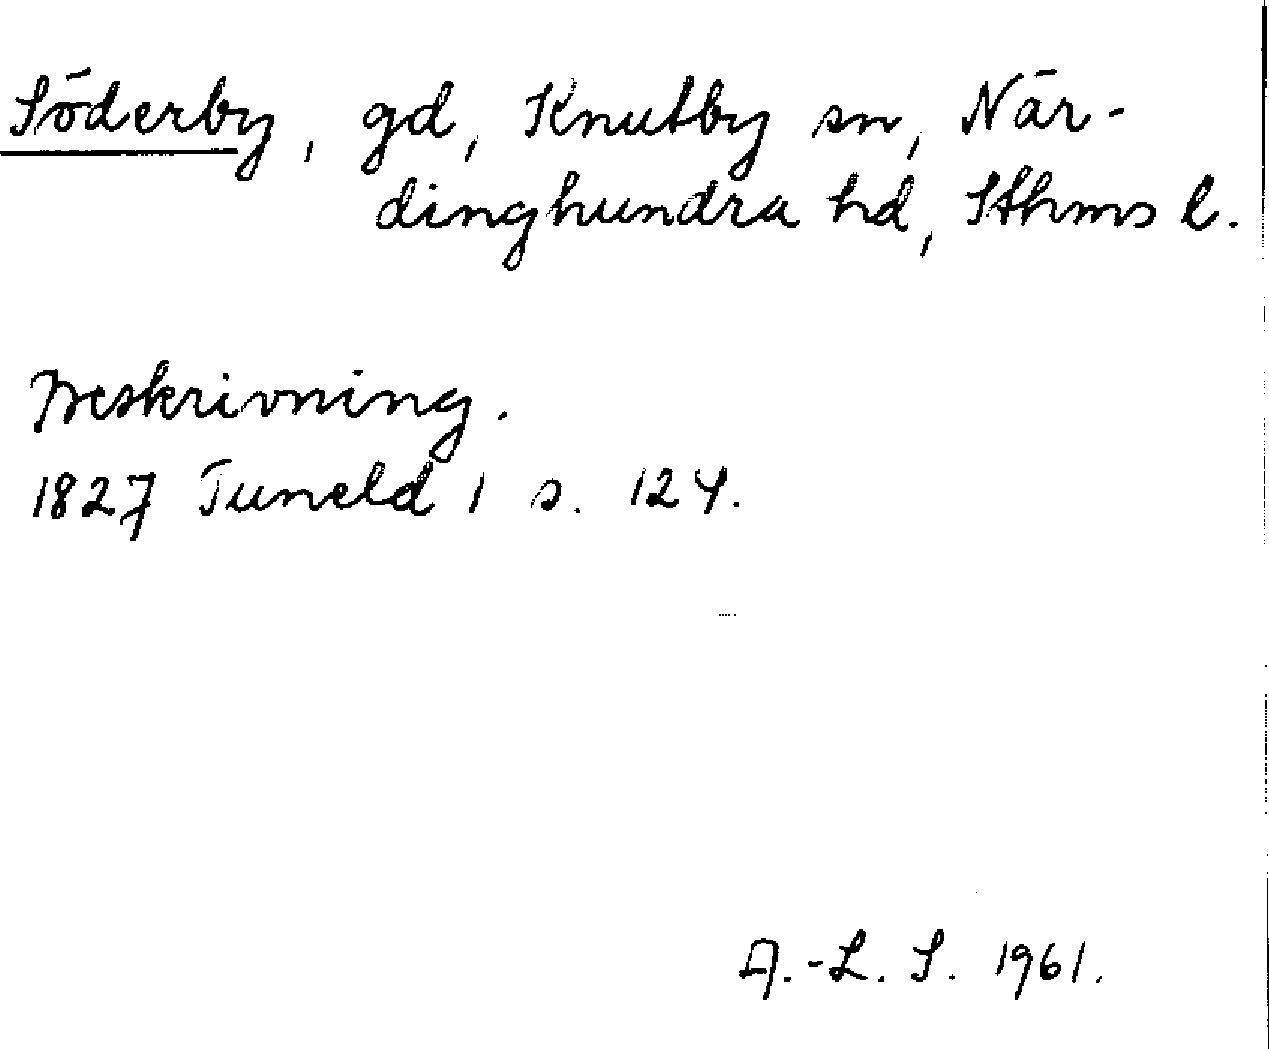 Söderby, gd, Knutby sn, När-
dinghundra hd, Sthms l.
Beskrivning.
1827 Tuneld 1 s. 124.
A.-L. S. 1961.